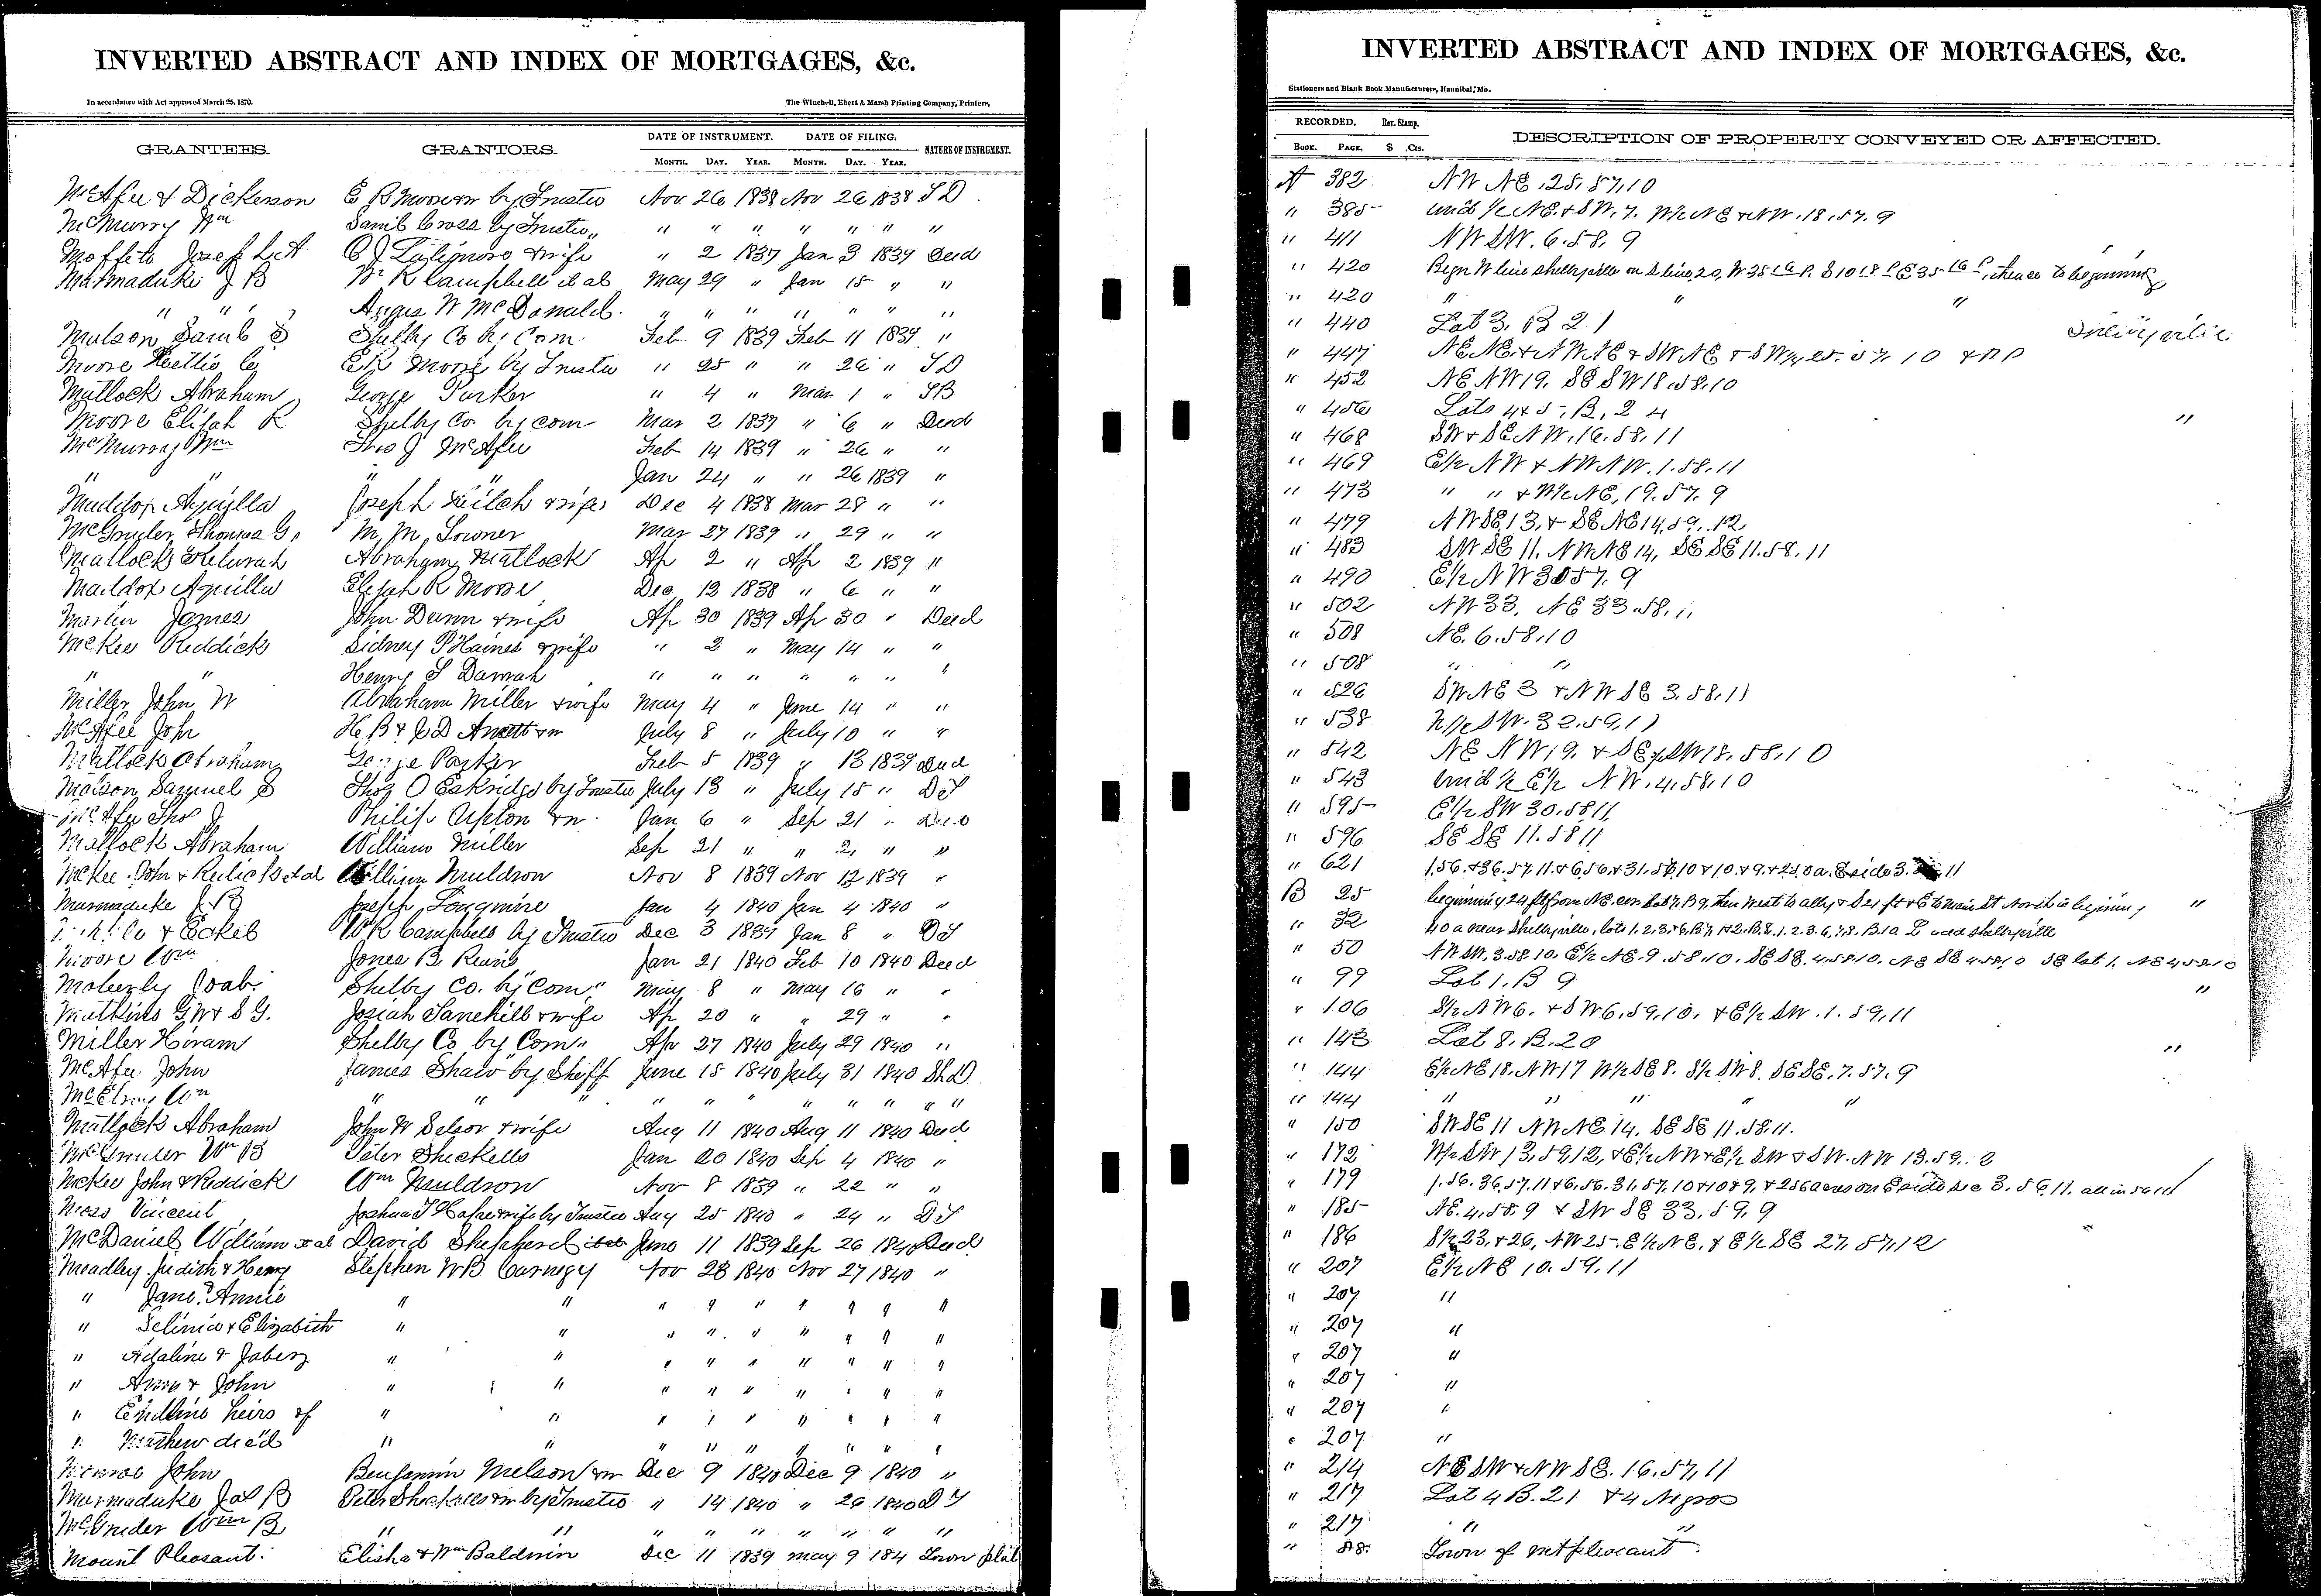 INVERTED ABSTRACT AND INDEX OF MORTGAGES, &c.
In accordance with Act approved March 25, 1870. The Winchell, Ebert & Marsh Printing Company, Printers,
DATE OF INSTRUMENT. DATE OF FILING.
GRANTEES. GRANTORS. NATURE OF INSTRUMENT.
MONTH. DAY. YEAR. MONTH. DAY. YEAR.
McAfee & Dickerson E R Moore by Trustee Nov 26 1838 Nov 26 1838 T D
McMurry Wm Saml Cross by Trustee " " " " " " "
Moffitt Josep & wife " 2 1837 Jan 3 1839 Deed
Marmaduke J B W R Campbell et al May 29 " Jan 15 " "
" " Angus W McDonald " " " " " " "
Shelby Co by Com. Feb 9 1839 Feb 11 1839 "
Moore E R Moore by Trustee " 25 " " 26 " T D
Matlock Abraham George Parker " 4 " Mar 1 " T B
Moore Elijah R Shelby Co by com Mar 2 1837 " 6 " Deed
McMurry Wm Thos J McAfee Feb 14 1839 " 26 " "
" " " " Jan 24 " " 26 1839 "
Maddox Aquilla Joseph & wife Dec 4 1838 Mar 28 " "
Thomas G. M. M. Towner Mar 27 1839 " 29 " "
Matlock Keturah Abraham Matlock Ap 2 " Ap 2 1839 "
Maddox Aquilla Elijah R Moore Dec 13 1838 " 6 " "
Martin James John Dunn & wife Ap 30 1839 Ap 30 " Deed
McKee Reddick Sidney P Haines & wife " 2 " May 14 " "
" " Henry S " " " " " " "
Miller John W Abraham Miller & wife May 4 " June 14 " "
McAfee John H B & J D July 8 " July 10 " "
Matlock Abraham George Parker Feb 5 1839 " 13 1839 Deed
Matson Samuel S Thos O Eskridge by Trustee July 13 " July 15 " D T
McAfee Thos J Philip Upton Jan 6 " Sep 21 " Deed
Matlock Abraham William Miller Sep 21 " " 21 " "
McKee John & Redick et al William Muldrow Nov 8 1839 Nov 12 1839 "
Marmaduke J B Joseph Longmire Jan 4 1840 Jan 4 1840 "
W R Campbell by Trustee Dec 3 1837 Jan 8 " D T
Moore Wm Jones B Jan 21 1840 Feb 10 1840 Deed
Moberly Joab Shelby Co. by Com " May 8 " May 16 " "
G W & S G. Josiah & wife Ap 20 " " 29 " "
Miller Hiram Shelby Co by Com " Apr 27 1840 July 29 1840 "
McAfee John James Shaw by Sheff June 15 1840 July 31 1840 Sh D
Wm " " " " " " " " " "
Matlock Abraham John W Selsor & wife Aug 11 1840 Aug 11 1840 Deed
Wm B Peter Shickells Jan 20 1840 Sep 4 1840 "
McKee John & Reddick Wm Muldrow Nov 8 1839 " 22 " "
Vincent Joshua T & wife by Trustee Aug 25 1840 " 24 " D T
McDaniel William et al David Shepherd et al June 11 1839 Sep 26 1840 Deed
Meadley Judith & Henry Stephen W B Carnegy Nov 28 1840 Nov 27 1840 "
" Jane, Annie " " " " " " " " "
" & Elizabeth " " " " " " " " "
" Adaline & Jabez " " " " " " " " "
" & John " " " " " " " " "
" heirs of " " " " " " " " "
" Mathew dec'd " " " " " " " " "
John Benjamin Melson Dec 9 1840 Dec 9 1840 "
Marmaduke Jas B by Trustee " 14 1840 " 26 1840 D T
Wm B " " " " " " " " "
Mount Pleasant. Elisha & Wm Baldwin Dec 11 1839 May 9 184 Town plat
INVERTED ABSTRACT AND INDEX OF MORTGAGES, &c.
Stationers and Blank Book Manufacturers, Hannibal, Mo.
RECORDED. Rev. Stamp.
DESCRIPTION OF PROPERTY CONVEYED OR AFFECTED.
BOOK. PAGE. $ Cts.
A 382 NW NE. 28. 57. 10
" 385 und 1/2 NE. & SW. 7. W1/2 NE & NW. 18. 57. 9
" 411 NW SW. 6. 58. 9
" 420 Begn W line Shelbyville on S line 20, thence to beginning
" 420 " " "
" 440 Lot 3. B 21 Shelbyville
" 447 NE NE & NW NE & SW NE & SW
" 452 NE NW 19. SE SW 18. 58. 10
" 456 Lots 4 & 5. B. 24 "
" 468 SW & SE NW. 16. 58. 11
" 469 E1/2 NW & NW NW. 1. 58. 11
" 473 " " & W1/2 NE, 19. 57. 9
" 479 NW SE 13. & SE NE 14. 59. 12
" 483 SW SE 11. NW NE 14, SE SE 11. 58. 11
" 490 E1/2 NW 30 57. 9
" 502 NW 33. NE 33 58. 11
" 508 NE. 6. 58. 10
" 508 " "
" 526 SW NE 3 & NW SE 3. 58. 11
" 538 SW. 32. 59. 11
" 542 NE NW 19. & SE SW 18. 58. 10
" 543 und 1/2 E1/2 NW. 4. 58. 10
" 595 E1/2 SW 30. 58 11
" 596 SE SE 11. 58 11
" 621 1. 56. & 36. 57. 11. & 6. 56. & 31.
B 25 beginning 24 ft from NE cor Lot 7. B 9, then West to alley & S 21 ft & E to main St North to beginning "
" 32 40 a near Shelbyville, lots Shelbyville
" 50 NW SW. 3. 58. 10. E1/2 NE. 9. 58. 10. SE SE. 4. 58. 10. NE SE 4 58. 10 SE lot 1. NE 4 58. 10
" 99 Lot 1. B 9 "
" 106 S1/2 NW 6. & SW 6. 59. 10. & E1/2 SW. 1. 59. 11
" 143 Lot 8. B. 20 "
" 144 E1/2 NE 18. NW 17 W1/2 SE 8. S1/2 SW 8. SE SE. 7. 57. 9
" 144 " " " " "
" 150 SW SE 11 NW NE 14. SE SE 11. 58. 11.
" 172 W1/2 SW 13. 59. 12, & E1/2 NW & E1/2 SW & SW. NW 13. 59.
" 179 1. 56. 36. 57. 11 & 6. 56. 31. 57. 10 & 10 & 9. & 256 acres on E side Sec 3. 56. 11.
" 185 NE. 4. 58. 9 & SW SE 33. 59. 9
" 186 S1/2 23. & 26, NW 25. E1/2 NE. & E1/2 SE 27. 57. 12
" 207 E1/2 NE 10. 59. 11
" 207 "
" 207 "
" 207 "
" 207 "
" 207 "
" 207 "
" 214 NE SW & NW SE. 16. 57. 11
" 217 Lot 4 B. 21 & 4 Negros
" 217 " "
" 88. Town of mt pleasant.